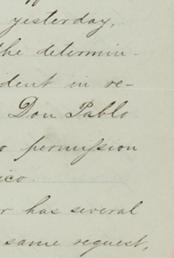 yesterday,
the determin-
dent in re-
Don Pablo
o permission
ico.
r has several
same request,